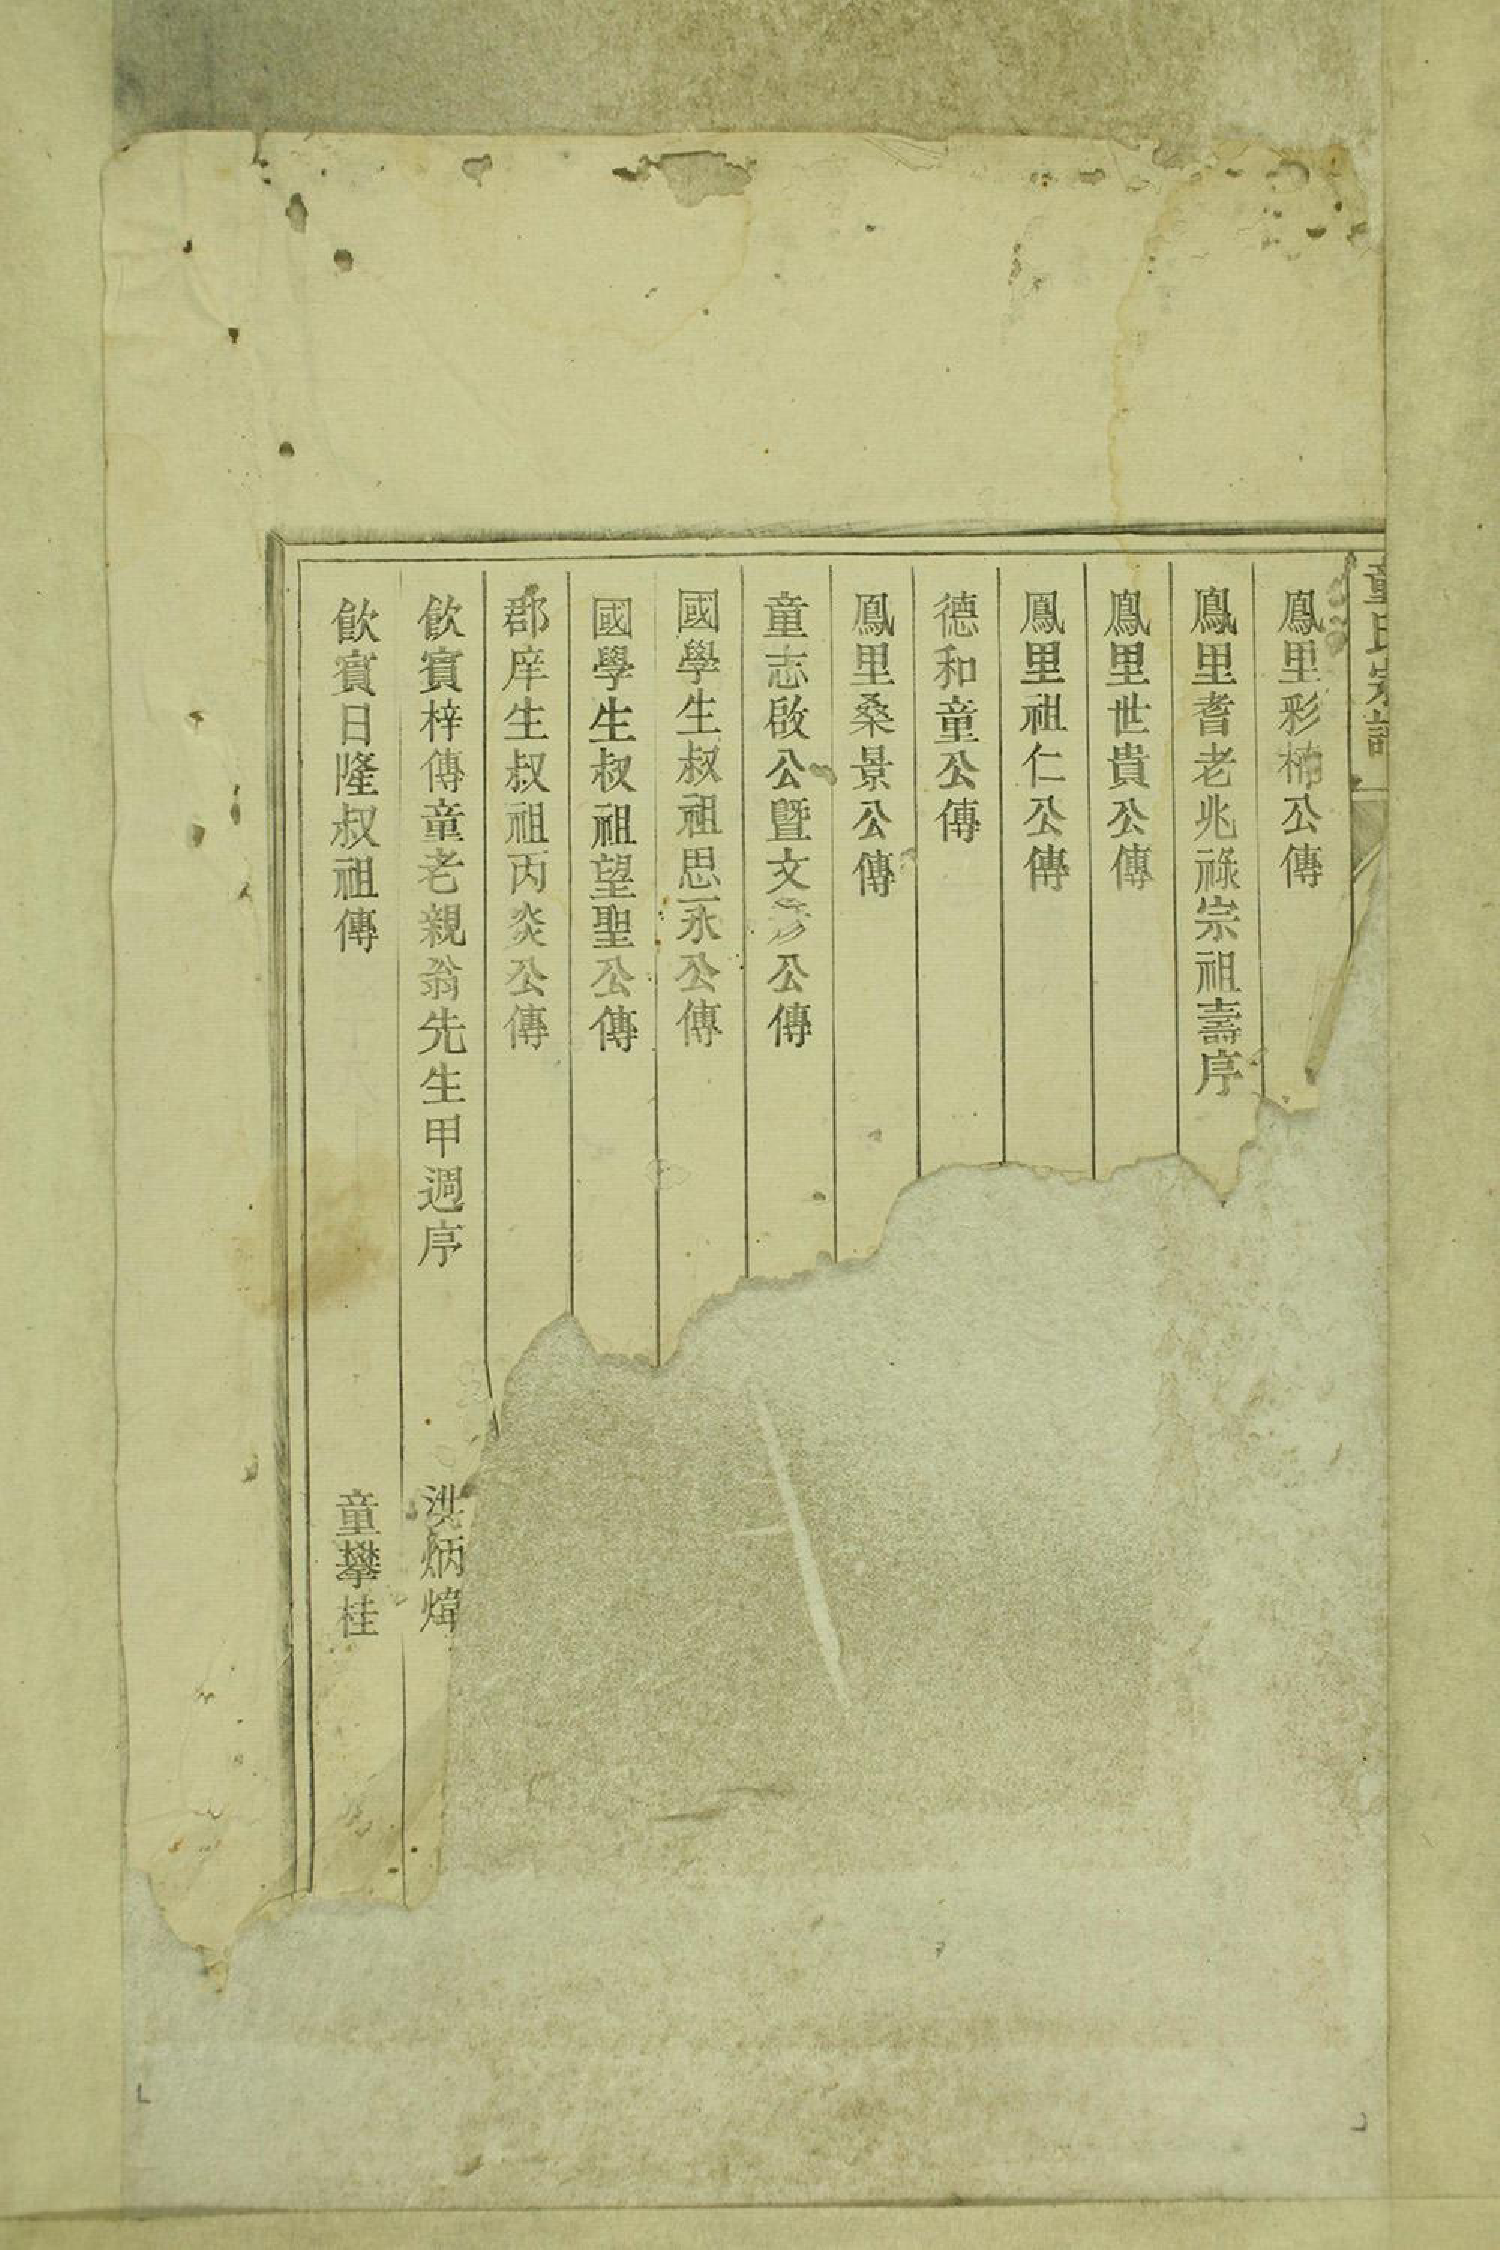 童氏宗譜
鳳里彩楠公傳
鳳里耆老兆祿宗祖壽序
鳳里世貴公傳
鳳里祖仁公傳
德和童公傳
鳳里桑景公傳
童志啟公暨文彥公傳
國學生叔祖思永公傳
國學生叔祖望聖公傳
郡庠生叔祖丙炎公傳
飲賓梓傳童老親翁先生甲週序 洪炳煒
飲賓日隆叔祖傳 童攀桂